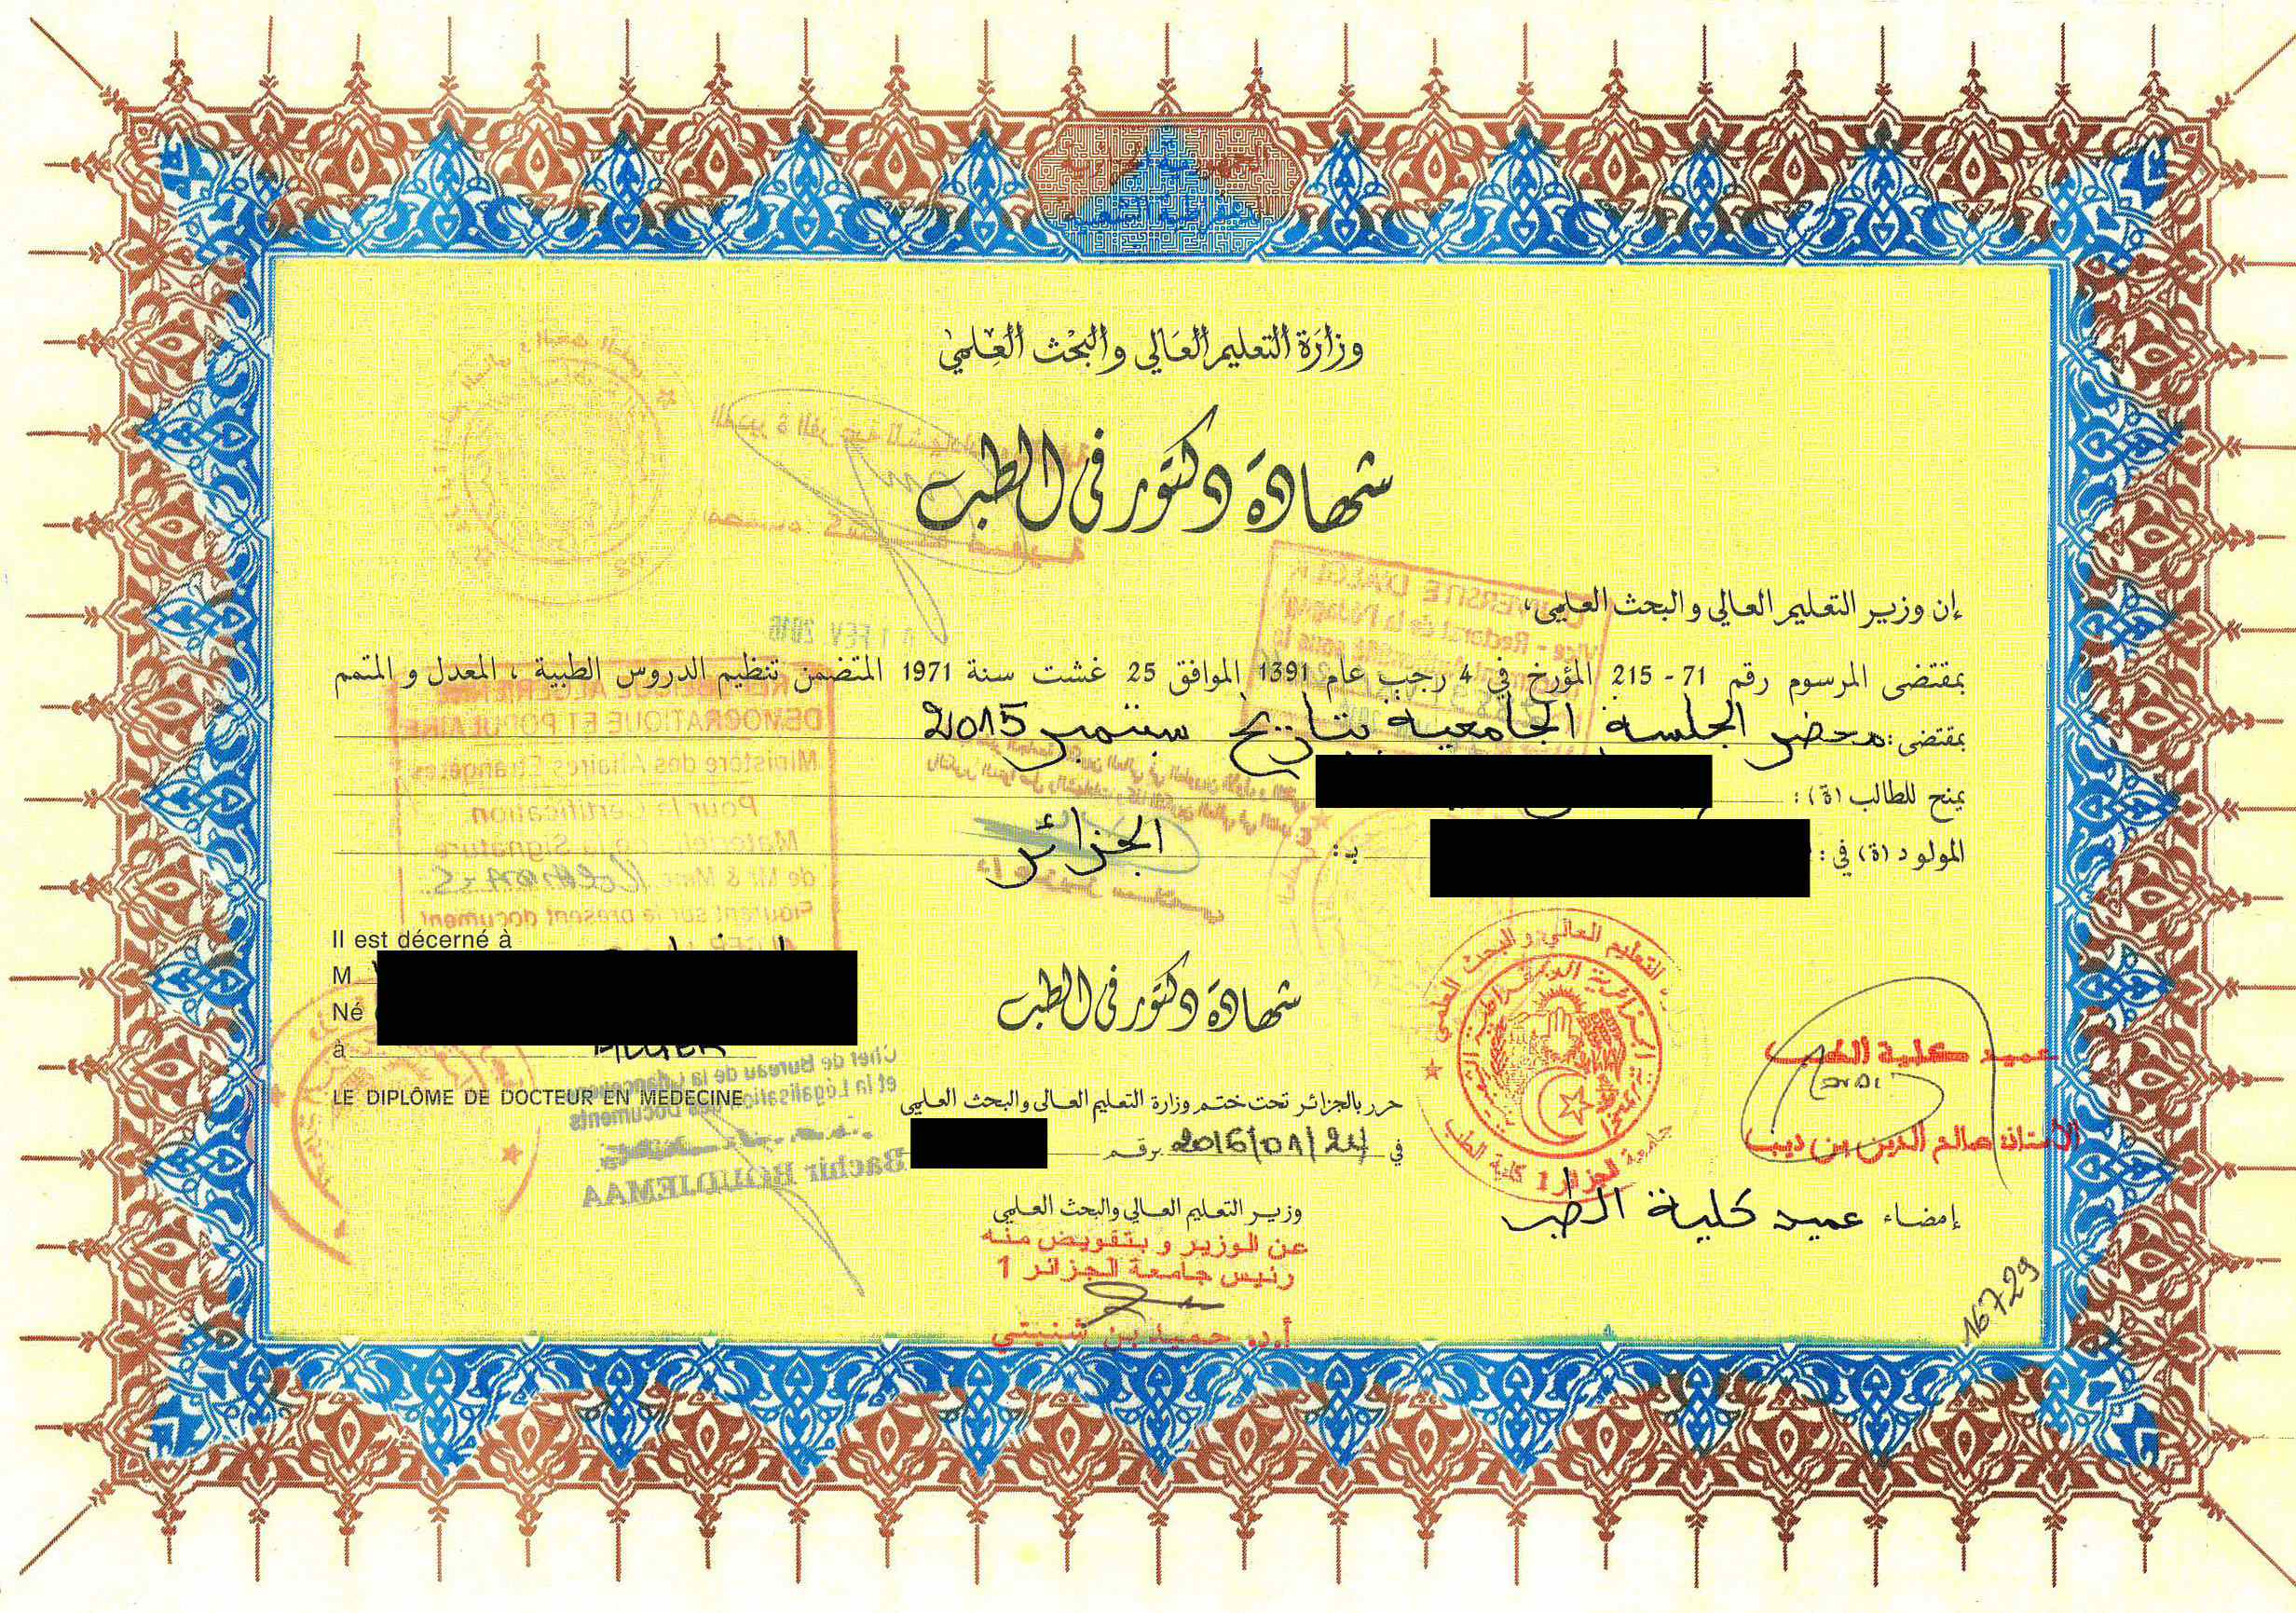 الجمهورية الجزائرية
الديمقراطية الشعبية
وزارة التعليم العالي والبحث العلمي
شهادة دكتور في الطب
إن وزير التعليم العالي والبحث العلمي،
بمقتضى المرسوم رقم 71 - 215 المؤرخ في 4 رجب عام 1391 الموافق 25 غشت سنة 1971 المتضمن تنظيم الدروس الطبية ، المعدل و المتمم
بمقتضى: محضر الجلسة الجامعية بتاريخ سبتمبر 2015
يمنح للطالب (ة) :
المولود (ة) في : بـ : الجزائر
Il est décerné à
M
Né
à ALGER
LE DIPLÔME DE DOCTEUR EN MEDECINE
شهادة دكتور في الطب
حرر بالجزائر تحت ختم وزارة التعليم العالي والبحث العلمي
في 2016/01/24 برقم
وزير التعليم العالي والبحث العلمي
عن الوزير و بتفويض منه
رئيس جامعة الجزائر 1
أ.د. حميد بن شنيتي
وزارة التعليم العالي و البحث العلمي
الجمهورية الجزائرية الديمقراطية الشعبية
جامعة الجزائر 1 كلية الطب
عميد كلية الطب
الأستاذ صالح الدين بن ديب
إمضاء عميد كلية الطب
16729
0 1 FEV. 2016
UNIVERSITE D'ALGER
Vice - Rectorat de la Pédagogi
REPUBLIQUE ALGERIENNE
DEMOCRATIQUE ET POPULAIRE
Ministère des Affaires Etrangères
Pour la Certification
Matérielle de la Signature
de Mr & Mme
Figurant sur le présent document
Chef de Bureau de la Chancellerie
et la Légalisation des Documents
Bachir BOUDJEMAA